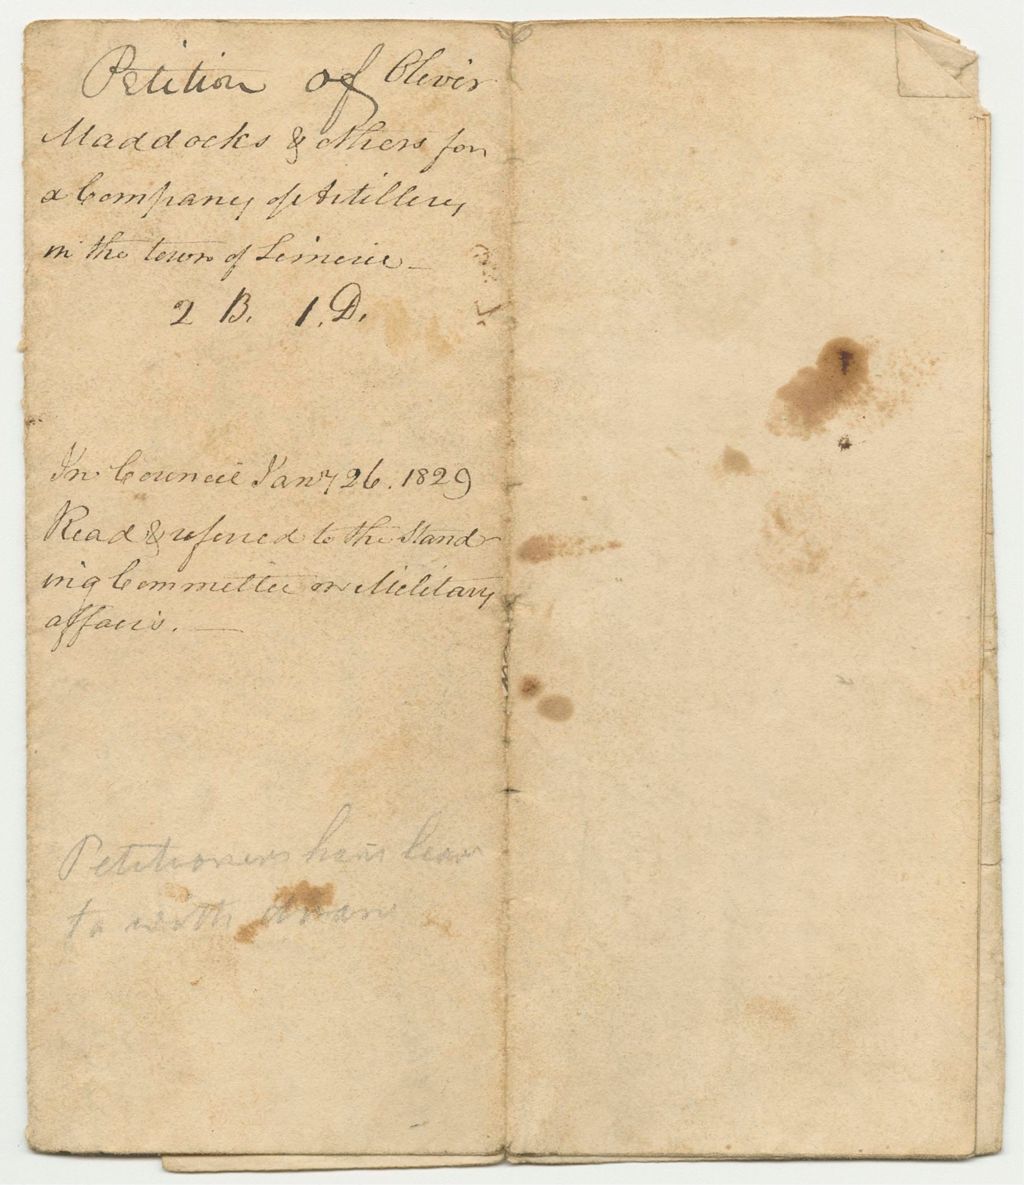 Petition of Oliver
Maddocks & others for
a Company of Artillery
in the town of Limeric_
2 B. 1. D.
In Council Jany 26. 1829
Read & referred to the Stand
ing Committee on Military
affairs. —
Petitioners have leave
to with draw